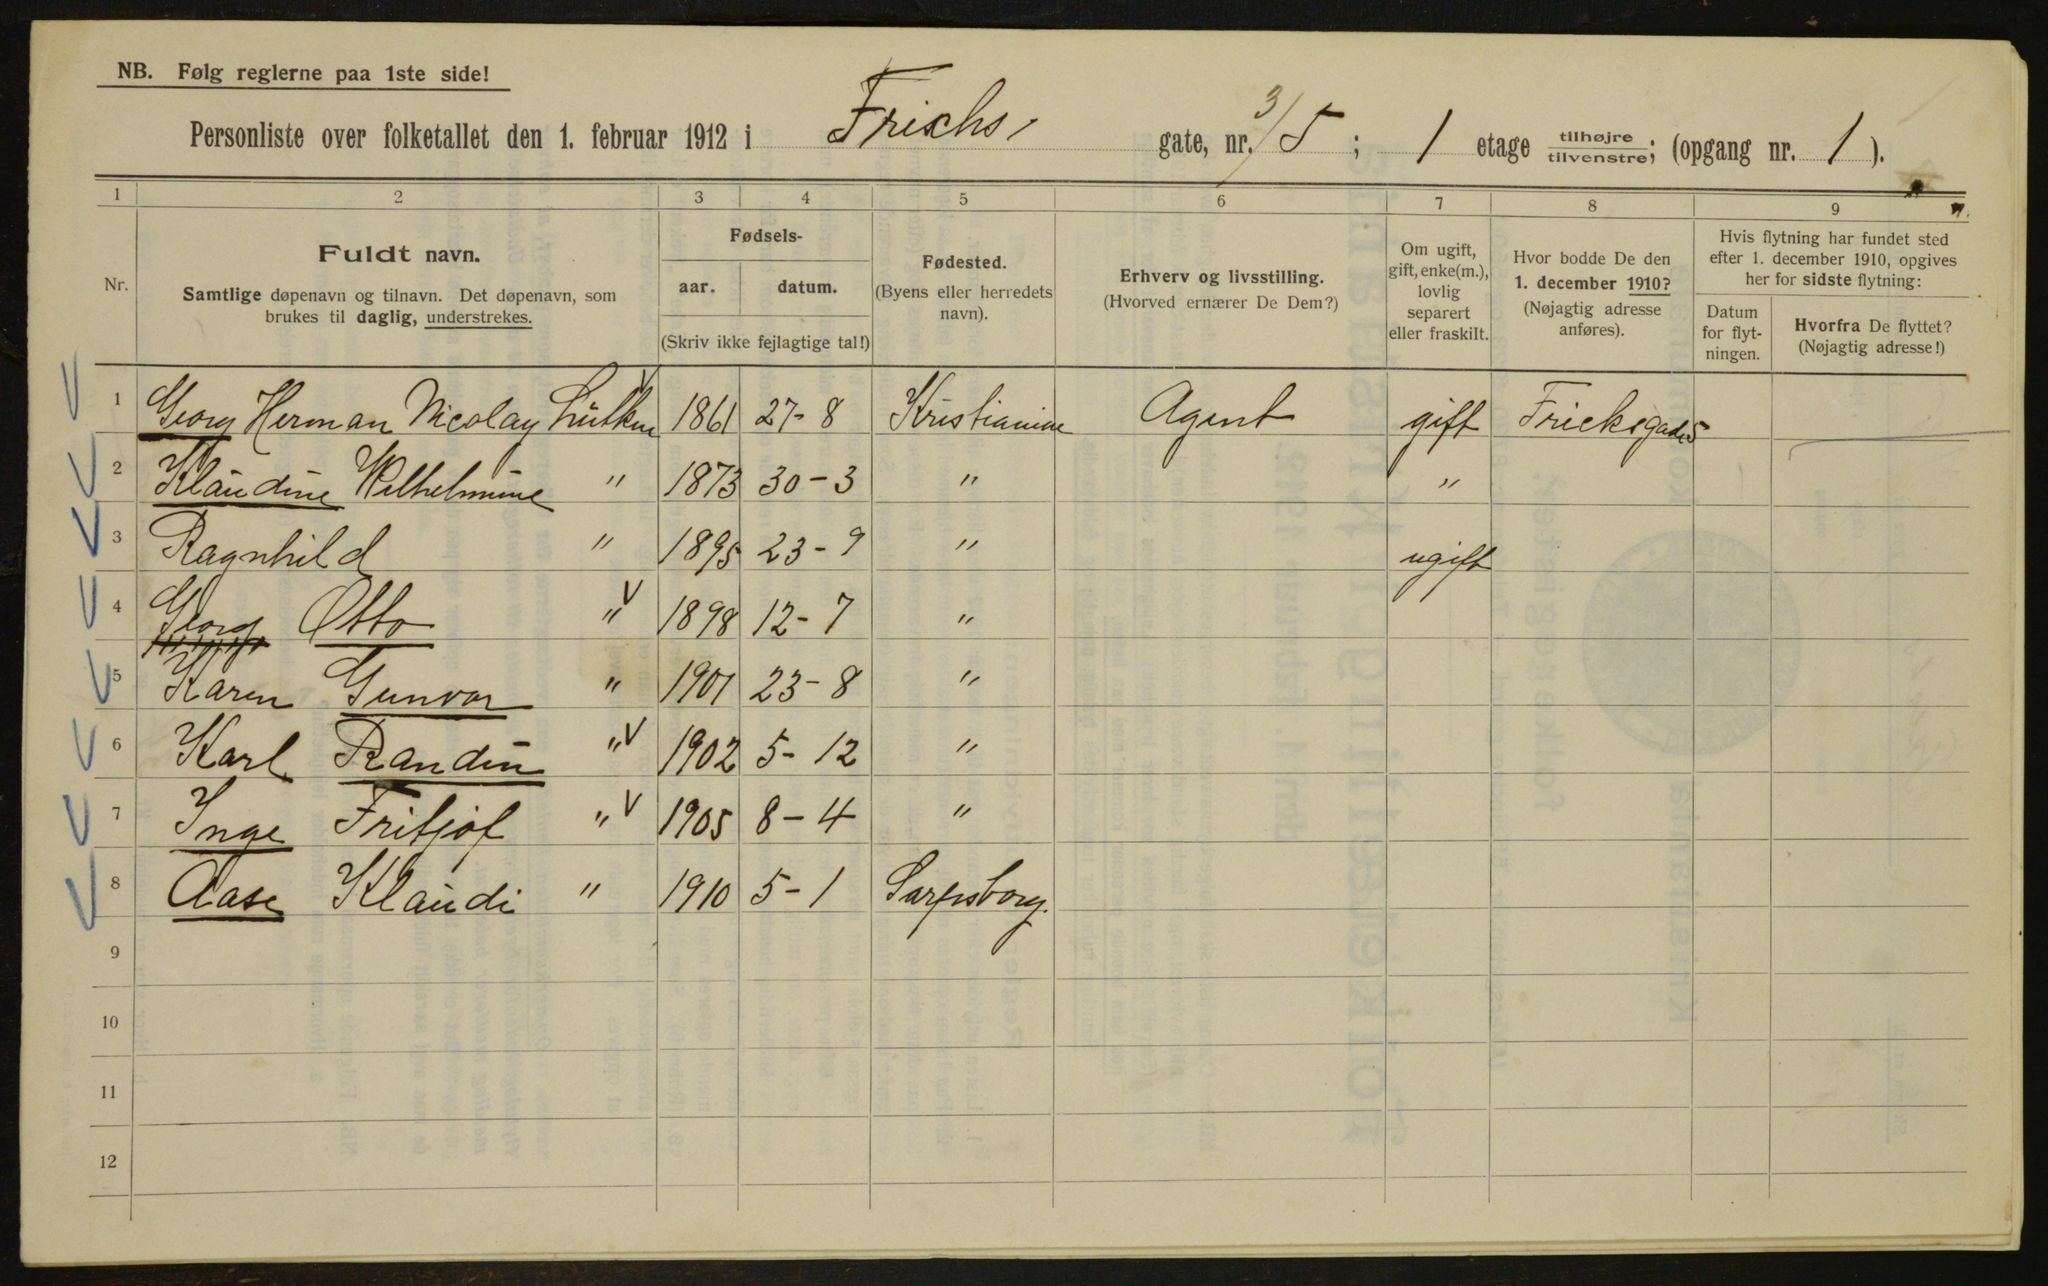 NB. Følg reglerne paa 1ste side!
Personliste over folketallet den 1. februar 1912 i Frichs gate, nr. 3/5; 1 etage tilhøjre tilvenstre; (opgang nr. 1).
1 2 3 4 5 6 7 8 9
Nr.
Fuldt navn.
Samtlige døpenavn og tilnavn. Det døpenavn, som
brukes til daglig, understrekes.
Fødsels-
aar. datum.
(Skriv ikke fejlagtige tal!)
Fødested.
(Byens eller herredets
navn).
Erhverv og livsstilling.
(Hvorved ernærer De Dem?)
Om ugift,
gift, enke(m.),
lovlig
separert
eller fraskilt.
Hvor bodde De den
1. december 1910?
(Nøjagtig adresse
anføres).
Hvis flytning har fundet sted
efter 1. december 1910, opgives
her for sidste flytning:
Datum
for flyt-
ningen.
Hvorfra De flyttet?
(Nøjagtig adresse!)
1 Georg Herman Nicolay 1861 27-8 Kristiania Agent gift Fricksgade 5
2 Klaudine Wilhelmine " 1873 30-3 " "
3 Ragnhild " 1895 23-9 " ugift
4 Georg Otto " 1898 12-7 "
5 Karen Gunvor " 1901 23-8 "
6 Karl Randin " 1902 5-12 "
7 Inge Fritjof " 1905 8-4 "
8 Aase Klaudi " 1910 5-1 Sarpsborg.
9
10
11
12